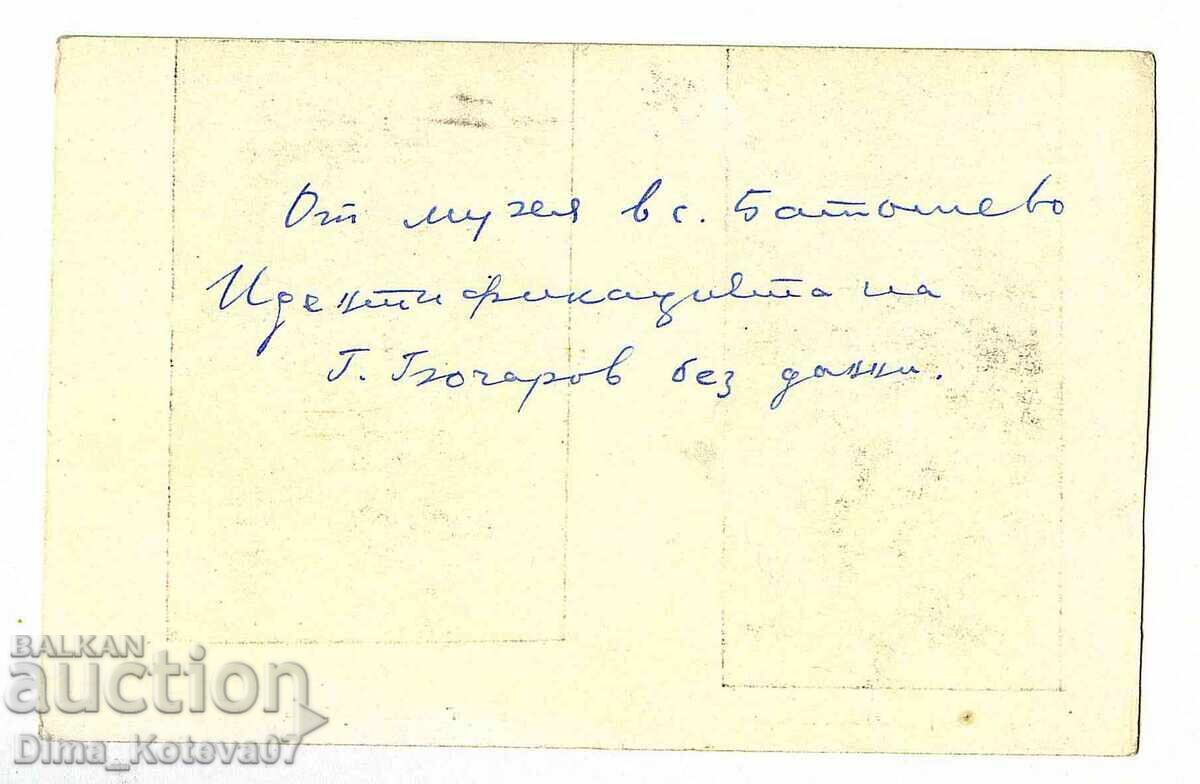 От музея в с. Батошево
Идентификацията на
Г. Бочаров без данни.
BALKAN
auction
Dima_Koteva07